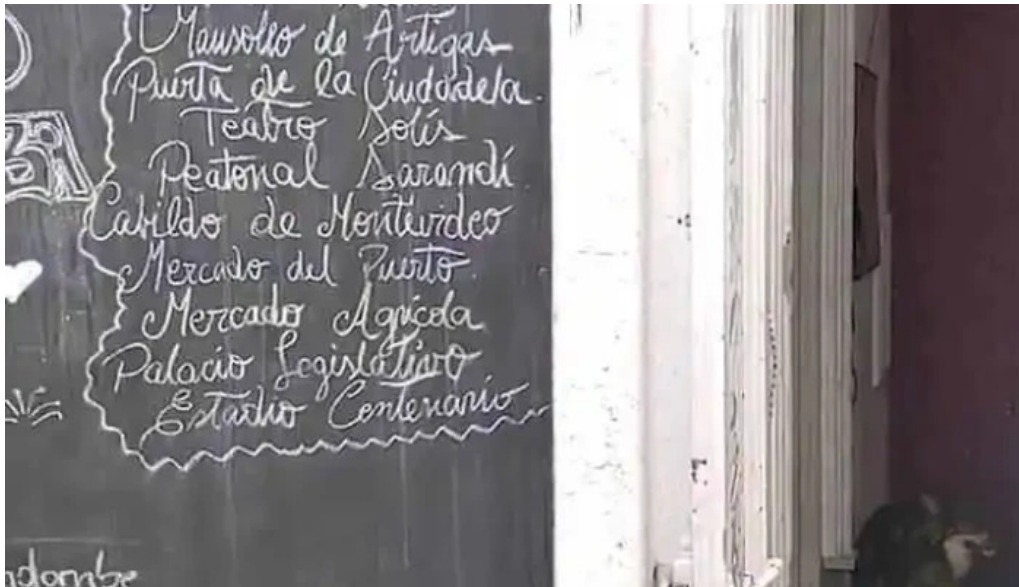 Mausoleo de Artigas
Puerta de la Ciudadela.
Teatro Solís
Peatonal Sarandí
Cabildo de Montevideo
Mercado del Puerto.
Mercado Agrícola
Palacio Legislativo
Estadio Centenario
ndombe